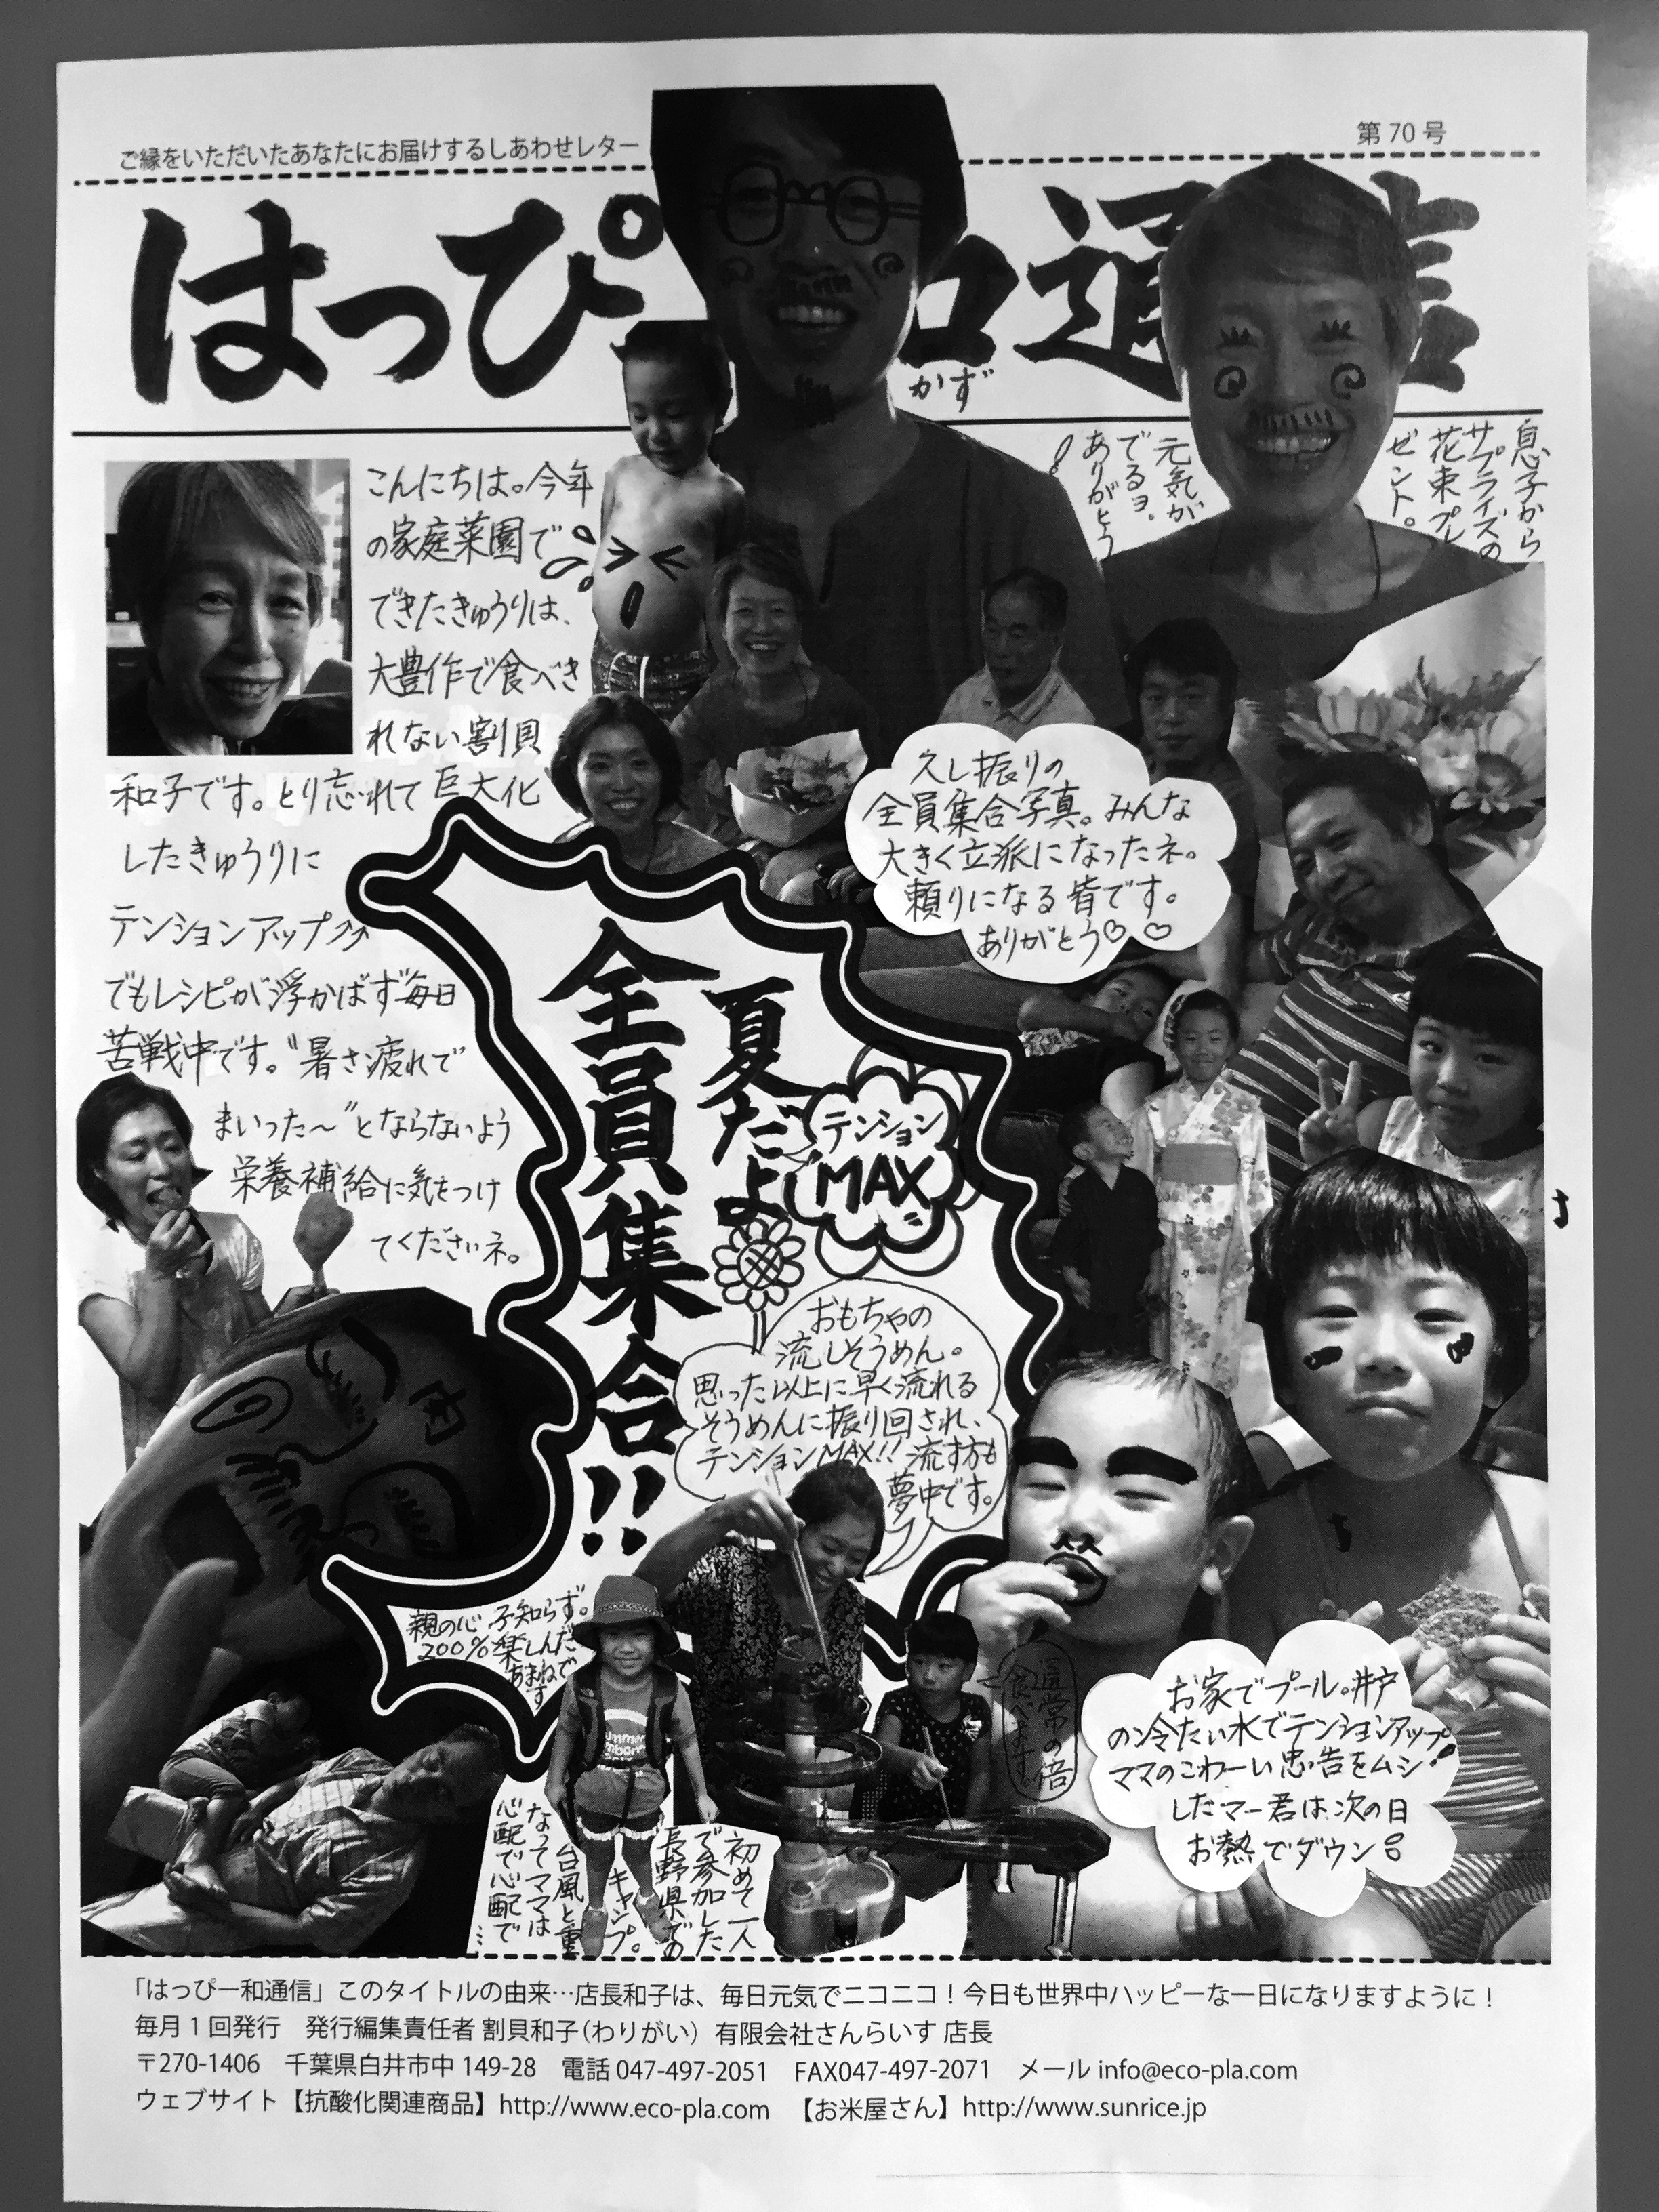 ご縁をいただいたあなたにお届けするしあわせレター
第70号
はっぴ 和通信
かず
息子から
サプライズの
花束プレ
ゼント。
元気が
でるヨ。
ありがとう
!
こんにちは。今年
の家庭菜園で
できたきゅうりは、
大豊作で食べき
れない割貝
和子です。とり忘れて巨大化
したきゅうりに
テンションアップ⤴⤴
でもレシピが浮かばず毎日
苦戦中です。〝暑さ疲れで
まいった〜〞とならないよう
栄養補給に気をつけ
てくださいネ。
久し振りの
全員集合写真。みんな
大きく立派になったネ。
頼りになる皆です。
ありがとう♡ ♡
夏だよ
全員集合!!
テンション
MAX
おもちゃの
流しそうめん。
思った以上に早く流れる
そうめんに振り回され、
テンションMAX!! 流す方も
夢中です。
肉
親の心 子知らず。
200%楽しんだ
あまねで
す
初めて一人
で参加した
長野県での
キャンプ。
台風と重
なってママは
心配で心配で…
通常の倍
食べます。
お家でプール。井戸
の冷たい水でテンションアップ!
ママのこわーい忠告をムシ
したマー君は、次の日
お熱でダウン
「はっぴー和通信」このタイトルの由来…店長和子は、毎日元気でニコニコ！今日も世界中ハッピーな一日になりますように！
毎月1回発行　発行編集責任者 割貝和子（わりがい）有限会社さんらいす 店長
〒270-1406　千葉県白井市中149-28　電話047-497-2051　FAX047-497-2071　メールinfo@eco-pla.com
ウェブサイト【抗酸化関連商品】http://www.eco-pla.com　【お米屋さん】http://www.sunrice.jp